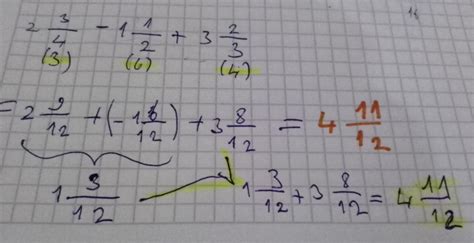 2 3/4 - 1 1/2 + 3 2/3
(3) (6) (4)
= 2 9/12 + (-1 6/12) + 3 8/12 = 4 11/12
1 3/12 1 3/12 + 3 8/12 = 4 11/12